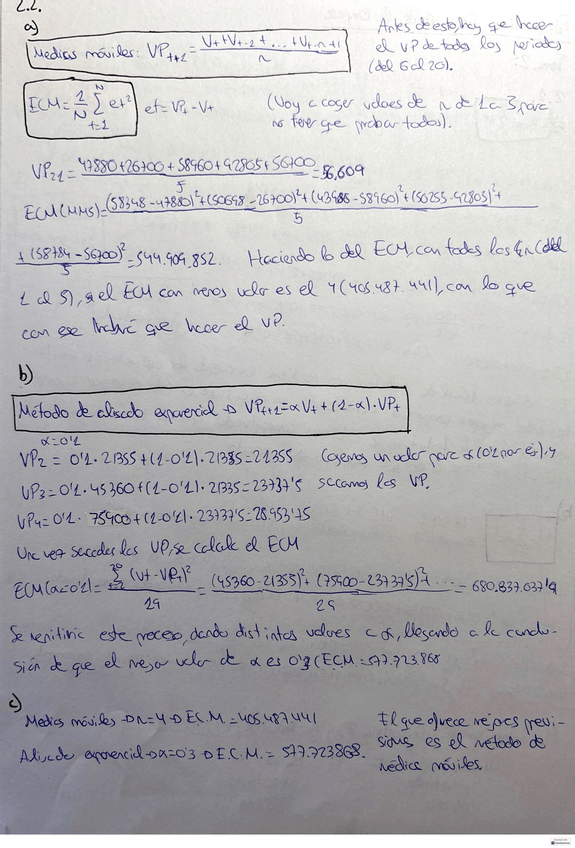 2.2.
a)
Medias móviles: VP_{t+1} = \frac{V_t + V_{t-1} + ... + V_{t-n+1}}{n}
Antes de esto, hay que hacer
el VP de todos los periodos
(del 6 al 20).
ECM = \frac{1}{N} \sum_{t=1}^{N} e_t^2   et = VP_t - V_t
(Voy a coger valores de n de 1 a 5 para
no tener que probar todos).
VP_{21} = \frac{47880 + 26700 + 58960 + 42805 + 56700}{5} = 56,609
ECM(MM5) = (58348 - 47880)^2 + (50698 - 26700)^2 + (43986 - 58960)^2 + (50255 - 42805)^2 +
5
+ (58784 - 56700)^2 = 544.909.852. Haciendo lo del ECM, con todos los (del
5
1 al 5), el ECM con menos valor es el 4 (405.487.441), con lo que
con ese habrá que hacer el VP.
b)
Método de alisado exponencial → VP_{t+1} = αV_t + (1-α)·VP_t
α=0'1
VP2 = 0'1·21355 + (1-0'1)·21355 = 21355
Cogemos un valor para α (0'1 por ej), y
VP3 = 0'1·45360 + (1-0'1)·21355 = 23737'5
sacamos los VP.
VP4 = 0'1·75400 + (1-0'1)·23737'5 = 28.953'75
Una vez sacados los VP, se calcula el ECM
ECM(α=0'1) = \frac{\sum (Vt - VPt)^2}{19} = \frac{(45360 - 21355)^2 + (75400 - 23737'5)^2 + ...}{19} = 680.837.037'9
Se repetiría este proceso, dando distintos valores a α, llegando a la conclu-
sión de que el mejor valor de α es 0'3 (ECM = 577.723.868
c)
Medias móviles → n=4 → E.C.M. = 405.487.441
Alisado exponencial → α=0'3 → E.C.M. = 577.723868.
El que ofrece mejores previ-
siones es el método de
medias móviles.